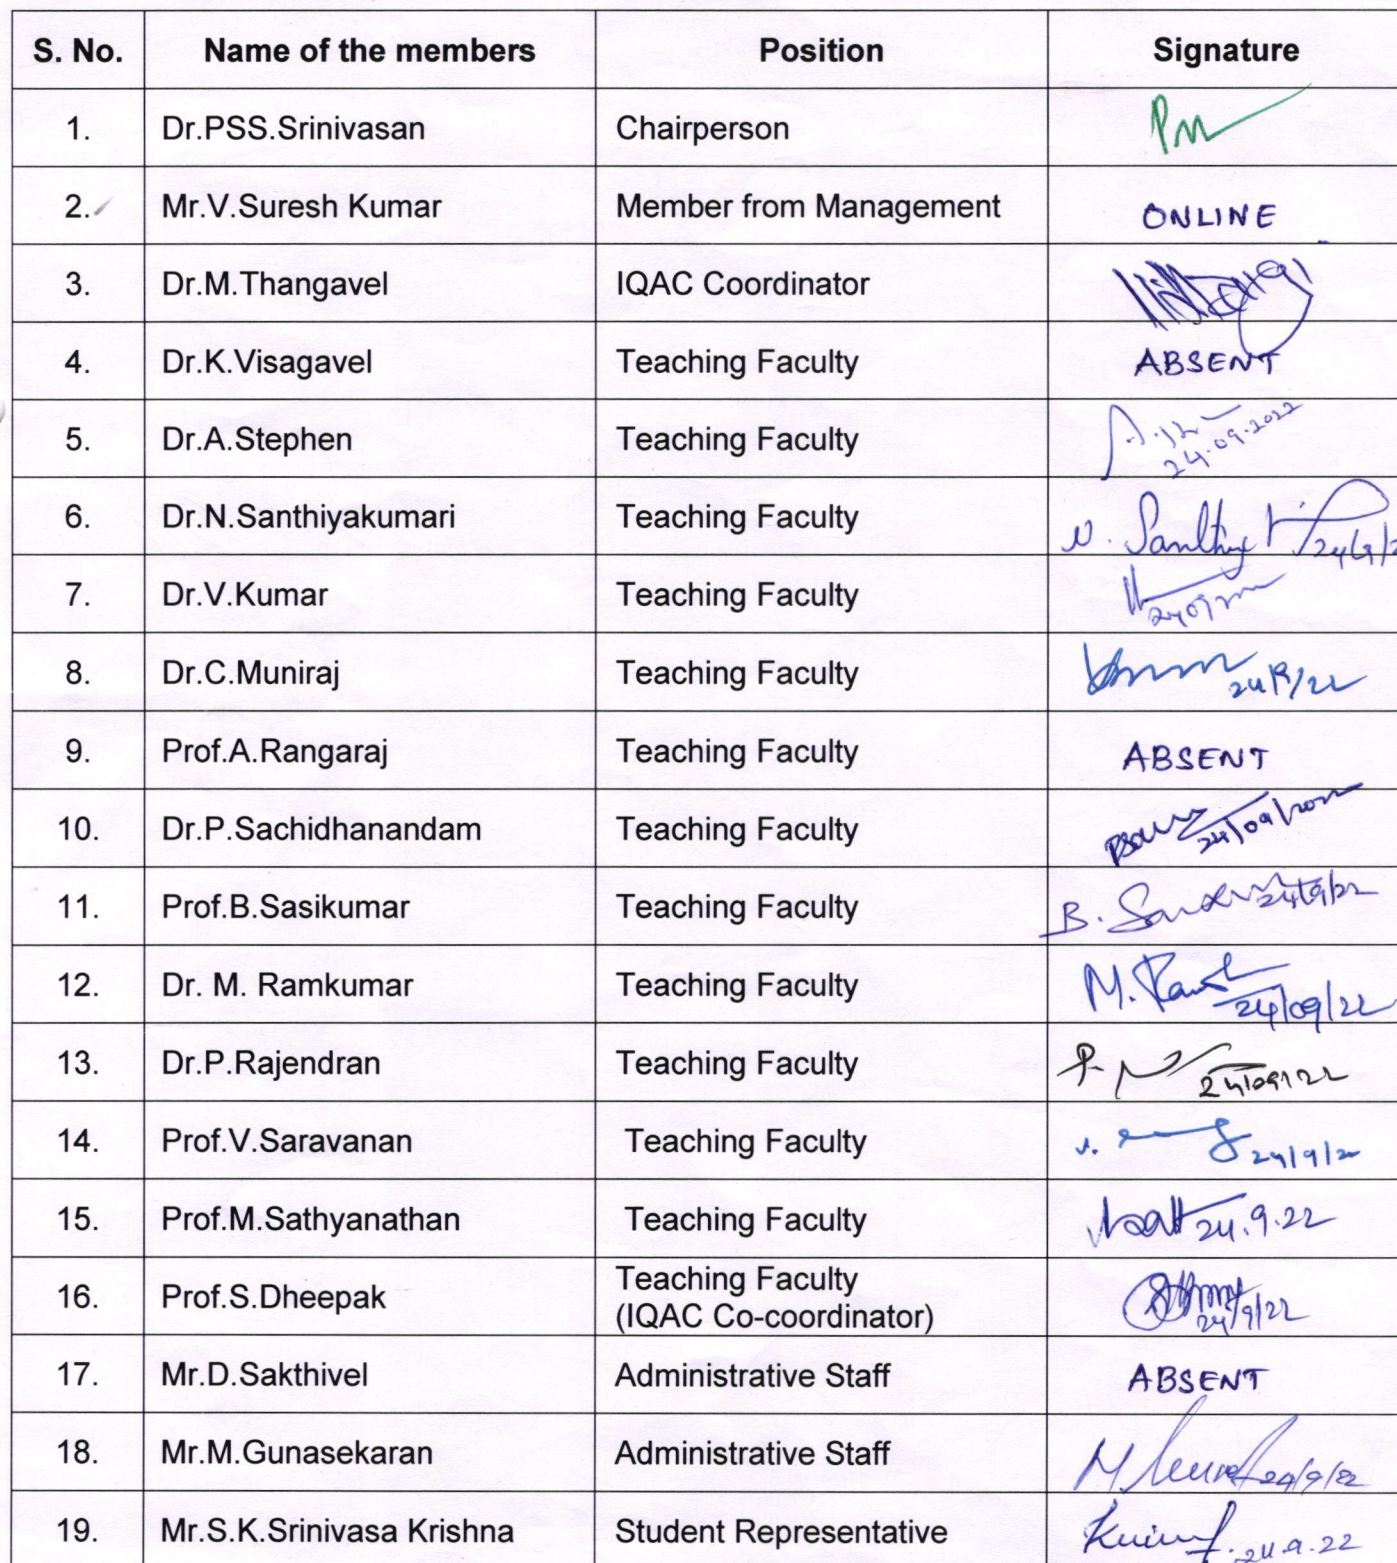 S. No. Name of the members Position Signature
1. Dr.PSS.Srinivasan Chairperson
2. Mr.V.Suresh Kumar Member from Management ONLINE
3. Dr.M.Thangavel IQAC Coordinator
4. Dr.K.Visagavel Teaching Faculty ABSENT
5. Dr.A.Stephen Teaching Faculty
24.09.2022
6. Dr.N.Santhiyakumari Teaching Faculty
7. Dr.V.Kumar Teaching Faculty
8. Dr.C.Muniraj Teaching Faculty 24/9/22
9. Prof.A.Rangaraj Teaching Faculty ABSENT
10. Dr.P.Sachidhanandam Teaching Faculty 24/09/2022
11. Prof.B.Sasikumar Teaching Faculty B. 24/9/22
12. Dr. M. Ramkumar Teaching Faculty M.
24/09/22
13. Dr.P.Rajendran Teaching Faculty P. 24/09/22
14. Prof.V.Saravanan Teaching Faculty 24/9/22
15. Prof.M.Sathyanathan Teaching Faculty 24.9.22
16. Prof.S.Dheepak Teaching Faculty
(IQAC Co-coordinator) 24/9/22
17. Mr.D.Sakthivel Administrative Staff ABSENT
18. Mr.M.Gunasekaran Administrative Staff M. 24/9/22
19. Mr.S.K.Srinivasa Krishna Student Representative 24.9.22